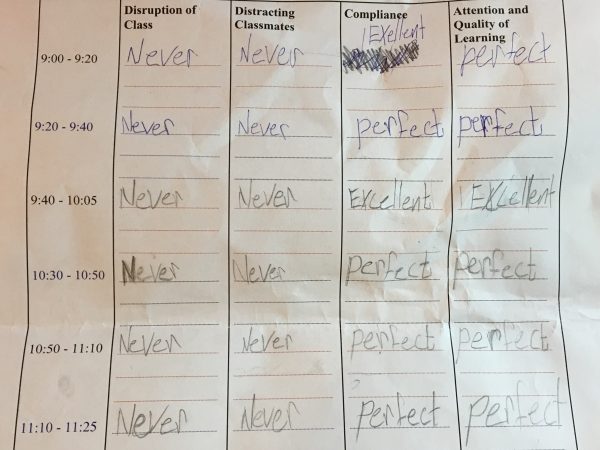 Disruption of Class Distracting Classmates Compliance Attention and Quality of Learning
9:00 - 9:20 Never Never Exellent perfect
9:20 - 9:40 Never Never perfect perfect
9:40 - 10:05 Never Never Excellent Excellent
10:30 - 10:50 Never Never perfect perfect
10:50 - 11:10 Never Never perfect perfect
11:10 - 11:25 Never Never perfect perfect